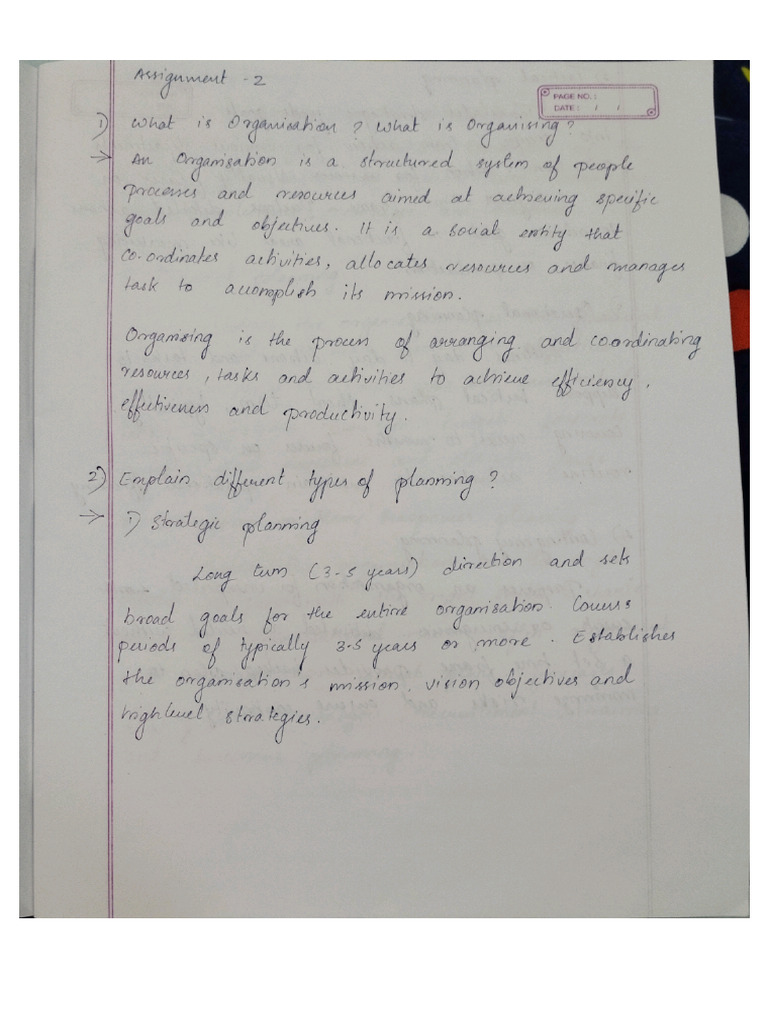 Assignment - 2
PAGE NO. :
DATE : / /
1) What is Organisation? What is Organising?
→ An Organisation is a structured system of people
processes and resources aimed at achieving specific
goals and objectives. It is a social entity that
co.ordinates activities, allocates resources and manages
task to accomplish its mission.
Organising is the process of arranging and co.ordinating
resources, tasks and activities to achieve efficiency,
effectiveness and productivity.
2) Explain different types of planning?
→ i) Strategic planning
Long term (3-5 years) direction and sets
broad goals for the entire organisation. Covers
periods of typically 3-5 years or more. Establishes
the organisation's mission, vision objectives and
high level strategies.